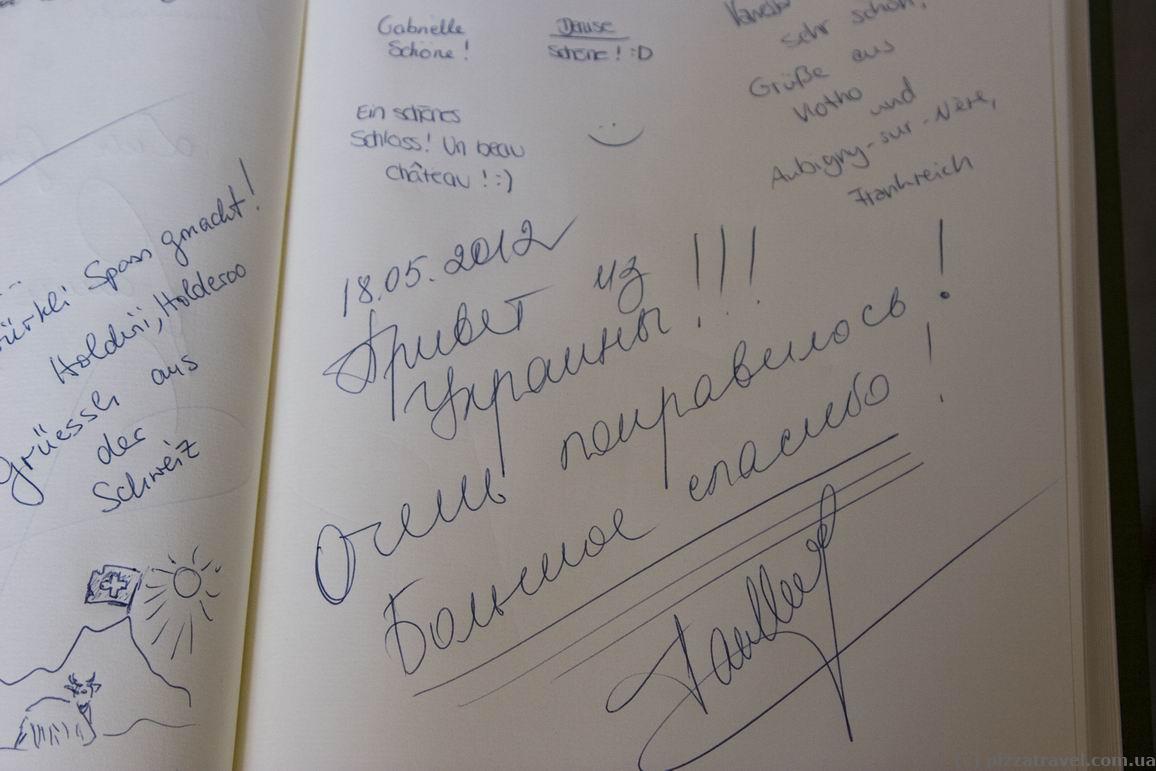 Spass gmacht!
Holdrii, Holderoo
grüessli aus
der
Schweiz
Gabrielle
Schöne!
Denise
Schöne! :D
Ein schönes
Schloss! Un beau
château! :)
sehr schön,
Grüße aus
Vlotho und
Aubigny-sur-Nère,
Frankreich
18.05.2012
Привет из
Украины!!!
Очень понравилось!
Большое спасибо!
(c) pizzatravel.com.ua